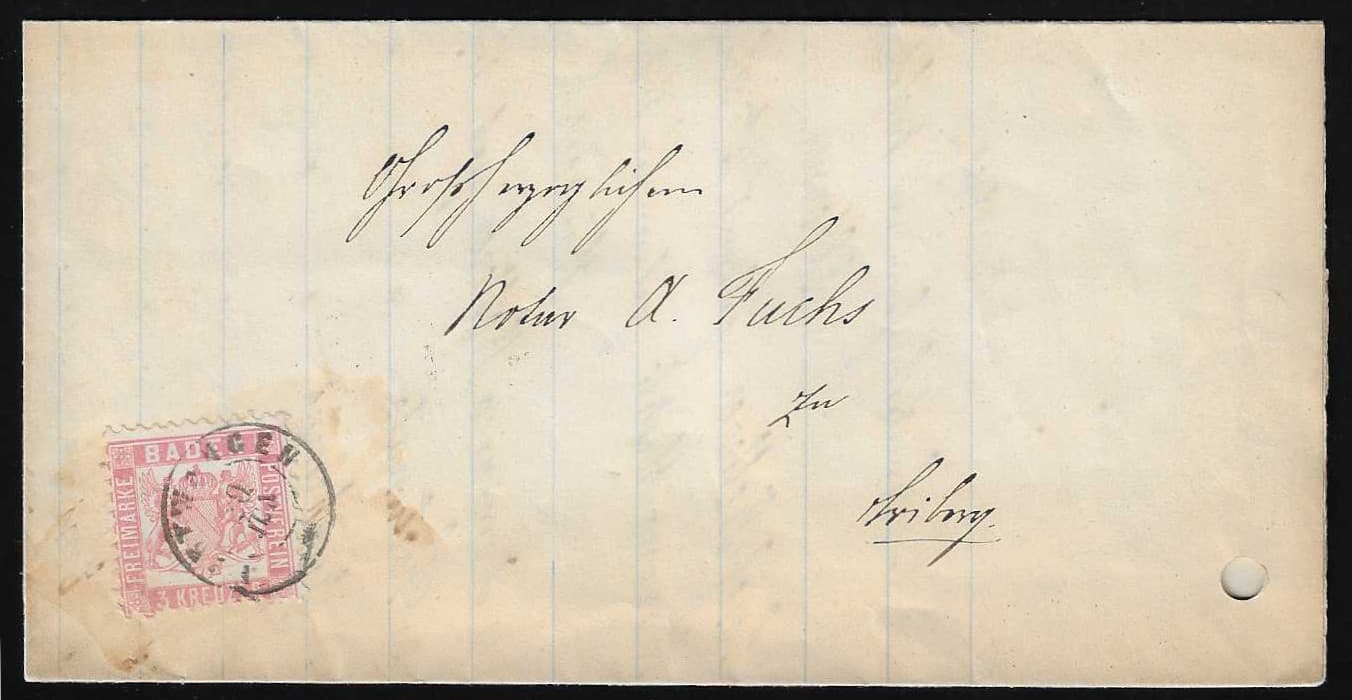 Großherzoglichem
Notar A. Fuchs
zu
Triberg.
BADEN
FREIMARKE
POSTVEREIN
3 KREUZER